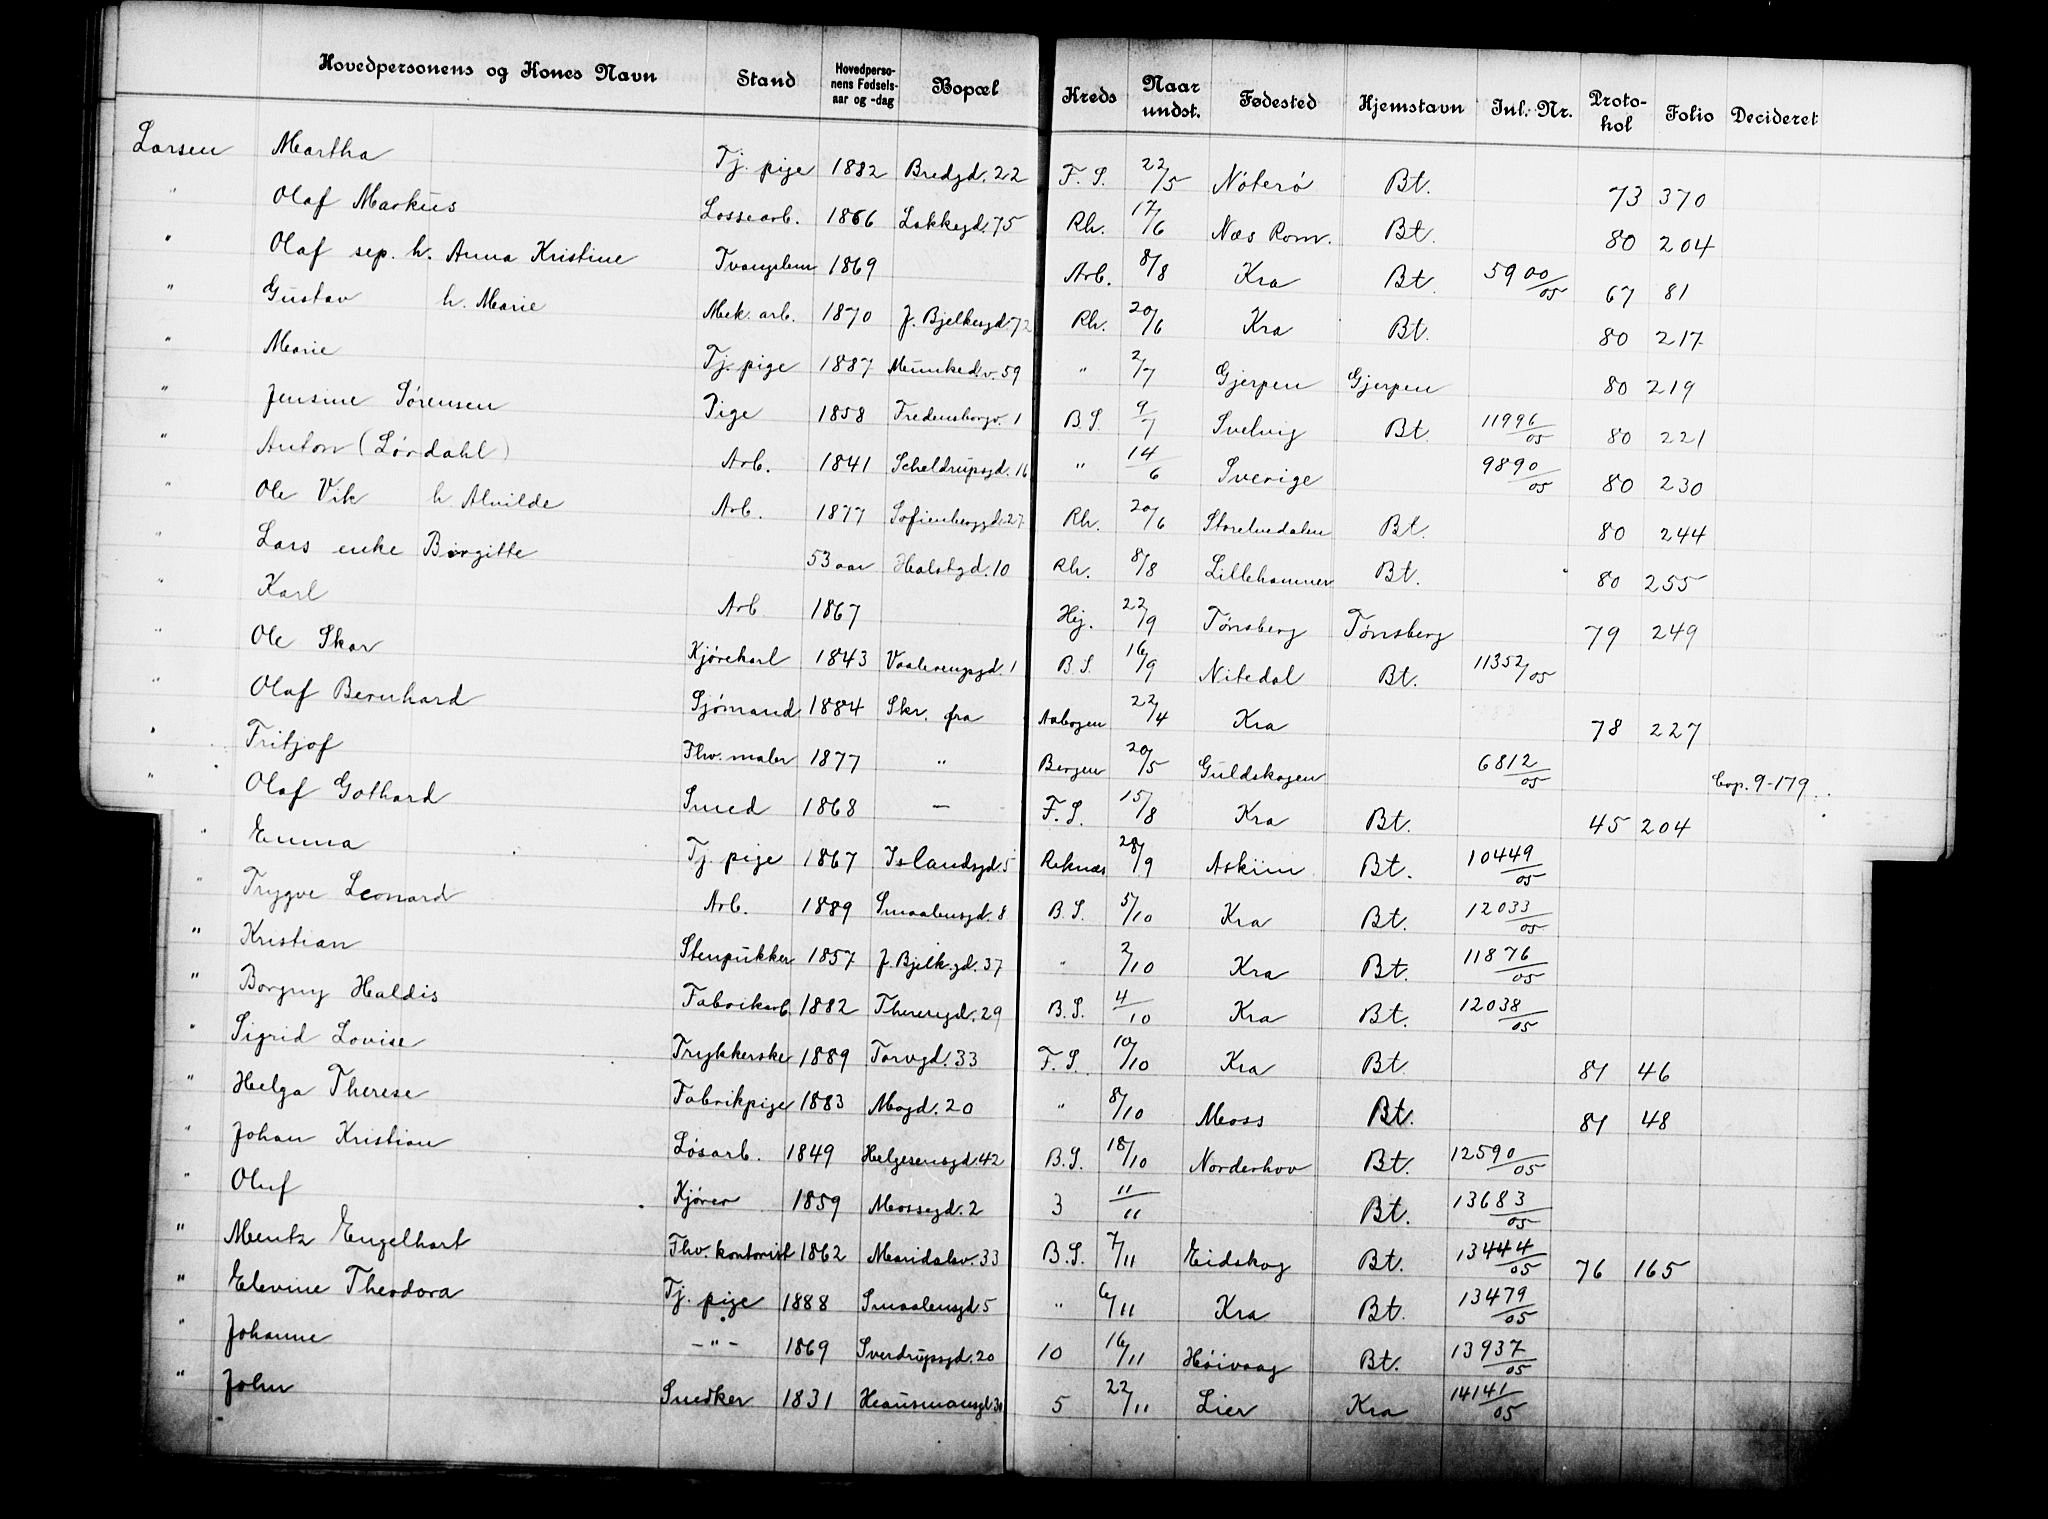 Hovedpersonens og Kones Navn | Stand | Hovedperso-nens Fødsels-aar og -dag | Bopæl | Kreds | Naar undst. | Fødested | Hjemstavn | Jnl. Nr. | Proto-kol | Folio | Decideret
Larsen Martha | Tj. pige | 1882 | Bredgd. 22 | F. S. | 22/5 | Nøterø | Bt. | 73 | 370
" Olaf Markus | Lossearb. | 1866 | Lakkegd. 75 | Rh. | 17/6 | Næs Rom. | Bt. | 80 | 204
" Olaf sep. h. Anna Kristine | 1869 | Arb. | 8/8 | Kra | Bt. | 5900/05 | 67 | 81
" Gustav h. Marie | Mek. arb. | 1870 | J. Bjelkesgd. 72 | Rh. | 20/6 | Kra | Bt. | 80 | 217
" Marie | Tj. pige | 1887 | Munked.v. 59 | " | 2/7 | Gjerpen | Gjerpen | 80 | 219
" Jensine Sørensen | Pige | 1858 | Fredensborgv. 1 | B. S. | 9/7 | Svelvig | Bt. | 11996/05 | 80 | 221
" Anton (Lørdahl) | Arb. | 1841 | Scheldrupsgd. 16 | " | 14/6 | Sverige | 9890/05 | 80 | 230
" Ole Vik h. Alvilde | Arb. | 1877 | Sofienberggd. 27 | Rh. | 20/6 | Storelvedalen | Bt. | 80 | 244
" Lars enke Birgitte | 53 aar | Holstgd. 10 | Rh. | 8/8 | Lillehammer | Bt. | 80 | 255
" Karl | Arb | 1867 | Hej. | 22/9 | Tønsberg | Tønsberg | 79 | 249
" Ole Skar | Kjørekarl | 1843 | Vaalerengsgd. 1 | B. S. | 16/9 | Nitedal | Bt. | 11352/05
" Olaf Bernhard | Sjømand | 1884 | Skr. fra | Aabogen | 22/4 | Kra | 78 | 227
" Fritjof | Fhv. maler | 1877 | " | Bergen | 20/5 | Guldskogen | 6812/05 | Cop. 9-179
" Olaf Gothard | Smed | 1868 | — | F. S. | 15/8 | Kra | Bt. | 45 | 204
" Emma | Tj. pige | 1867 | Islandsgd. 5 | Reknæs | 28/9 | Askim | Bt. | 10449/05
" Trygve Leonard | Arb. | 1889 | Smaalensgd. 8 | B. S. | 5/10 | Kra | Bt. | 12033/05
" Kristian | Stenpukker | 1857 | J. Bjelk.gd. 37 | " | 2/10 | Kra | Bt. | 11876/05
" Borgny Haldis | Fabrikarb. | 1882 | Theresgd. 29 | B. S. | 4/10 | Kra | Bt. | 12038/05
" Sigrid Lovise | Trykkerske | 1889 | Torvgd. 33 | F. S. | 10/10 | Kra | Bt | 81 | 46
" Helga Therese | Fabrikpige | 1883 | Mogd. 20 | " | 8/10 | Moss | Bt. | 81 | 48
" Johan Kristian | Løsarb. | 1849 | Helgesensgd. 42 | B. S. | 18/10 | Norderhov | Bt. | 12590/05
" Oluf | Kjører | 1859 | Mossegd. 2 | 3 | 11/11 | Bt. | 13683/05
" Mentz Engelhart | Fhv. kontorist | 1862 | Maridalsv. 33 | B. S. | 7/11 | Eidskog | Bt. | 13444/05 | 76 | 165
" Elevine Theodora | Tj. pige | 1888 | Smaalensgd. 5 | " | 6/11 | Kra | Bt. | 13479/05
" Johanne | -"- | 1869 | Sverdrupsgd. 20 | 10 | 16/11 | Høivaag | Bt. | 13937/05
" John | Snedker | 1831 | Hausmansgd 30 | 5 | 22/11 | Lier | Kra | 14141/05